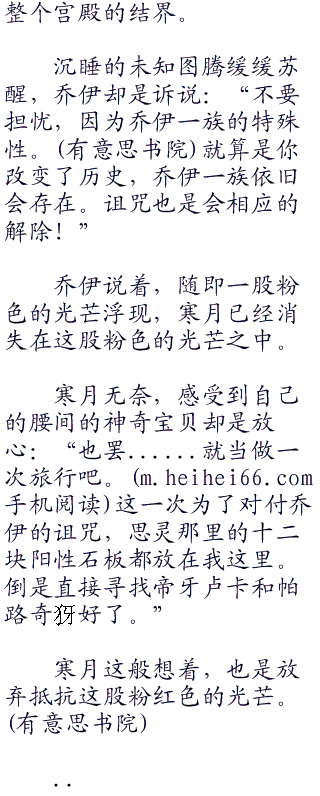 整个宫殿的结界。
沉睡的未知图腾缓缓苏
醒，乔伊却是诉说：“不要
担忧，因为乔伊一族的特殊
性。(有意思书院)就算是你
改变了历史，乔伊一族依旧
会存在。诅咒也是会相应的
解除！”
乔伊说着，随即一股粉
色的光芒浮现，寒月已经消
失在这股粉色的光芒之中。
寒月无奈，感受到自己
的腰间的神奇宝贝却是放
心：“也罢......就当做一
次旅行吧。(m.heihei66.com
手机阅读)这一次为了对付乔
伊的诅咒，思灵那里的十二
块阳性石板都放在我这里。
倒是直接寻找帝牙卢卡和帕
路奇犽好了。”
寒月这般想着，也是放
弃抵抗这股粉红色的光芒。
(有意思书院)
..